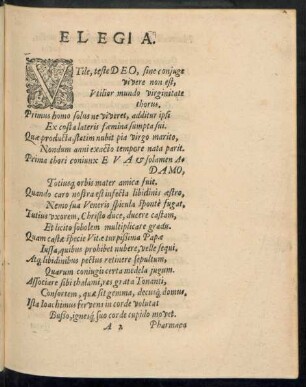 ELEGIA.
VTile, teste DEO, sine conjuge
vivere non est,
Vtilior mundo virginitate
thorus.
Primus homo solus ne viveret, additur ipsi
Ex costa lateris fœmina sumpta sui.
Quæ producta statim nubit pia virgo marito,
Nondum anni exacto tempore nata parit.
Prima thori coniunx EVA & solamen A-
DAMO,
Totiusq́ orbis mater amica fuit.
Quando caro nostra est infecta libidinis astro,
Nemo sua Veneris spicula sponte fugat,
Tutius vxorem, Christo duce, ducere castam,
Et licito sobolem multiplicare gradu.
Quam castæ specie Vitæ turpissima Papæ
Iussa, quibus prohibet nubere, velle sequi,
Atq́ libidinibus pectus retinere sepultum,
Quarum coniugii certa medela jugum.
Associare sibi thalami, res grata Tonanti,
Consortem, quæ sit gemma, decusq́, domus,
Ista Ioachimus fervens in corde volutat
Busso, ignesq́ suo corde cupido movet.
A 2 Pharmaca